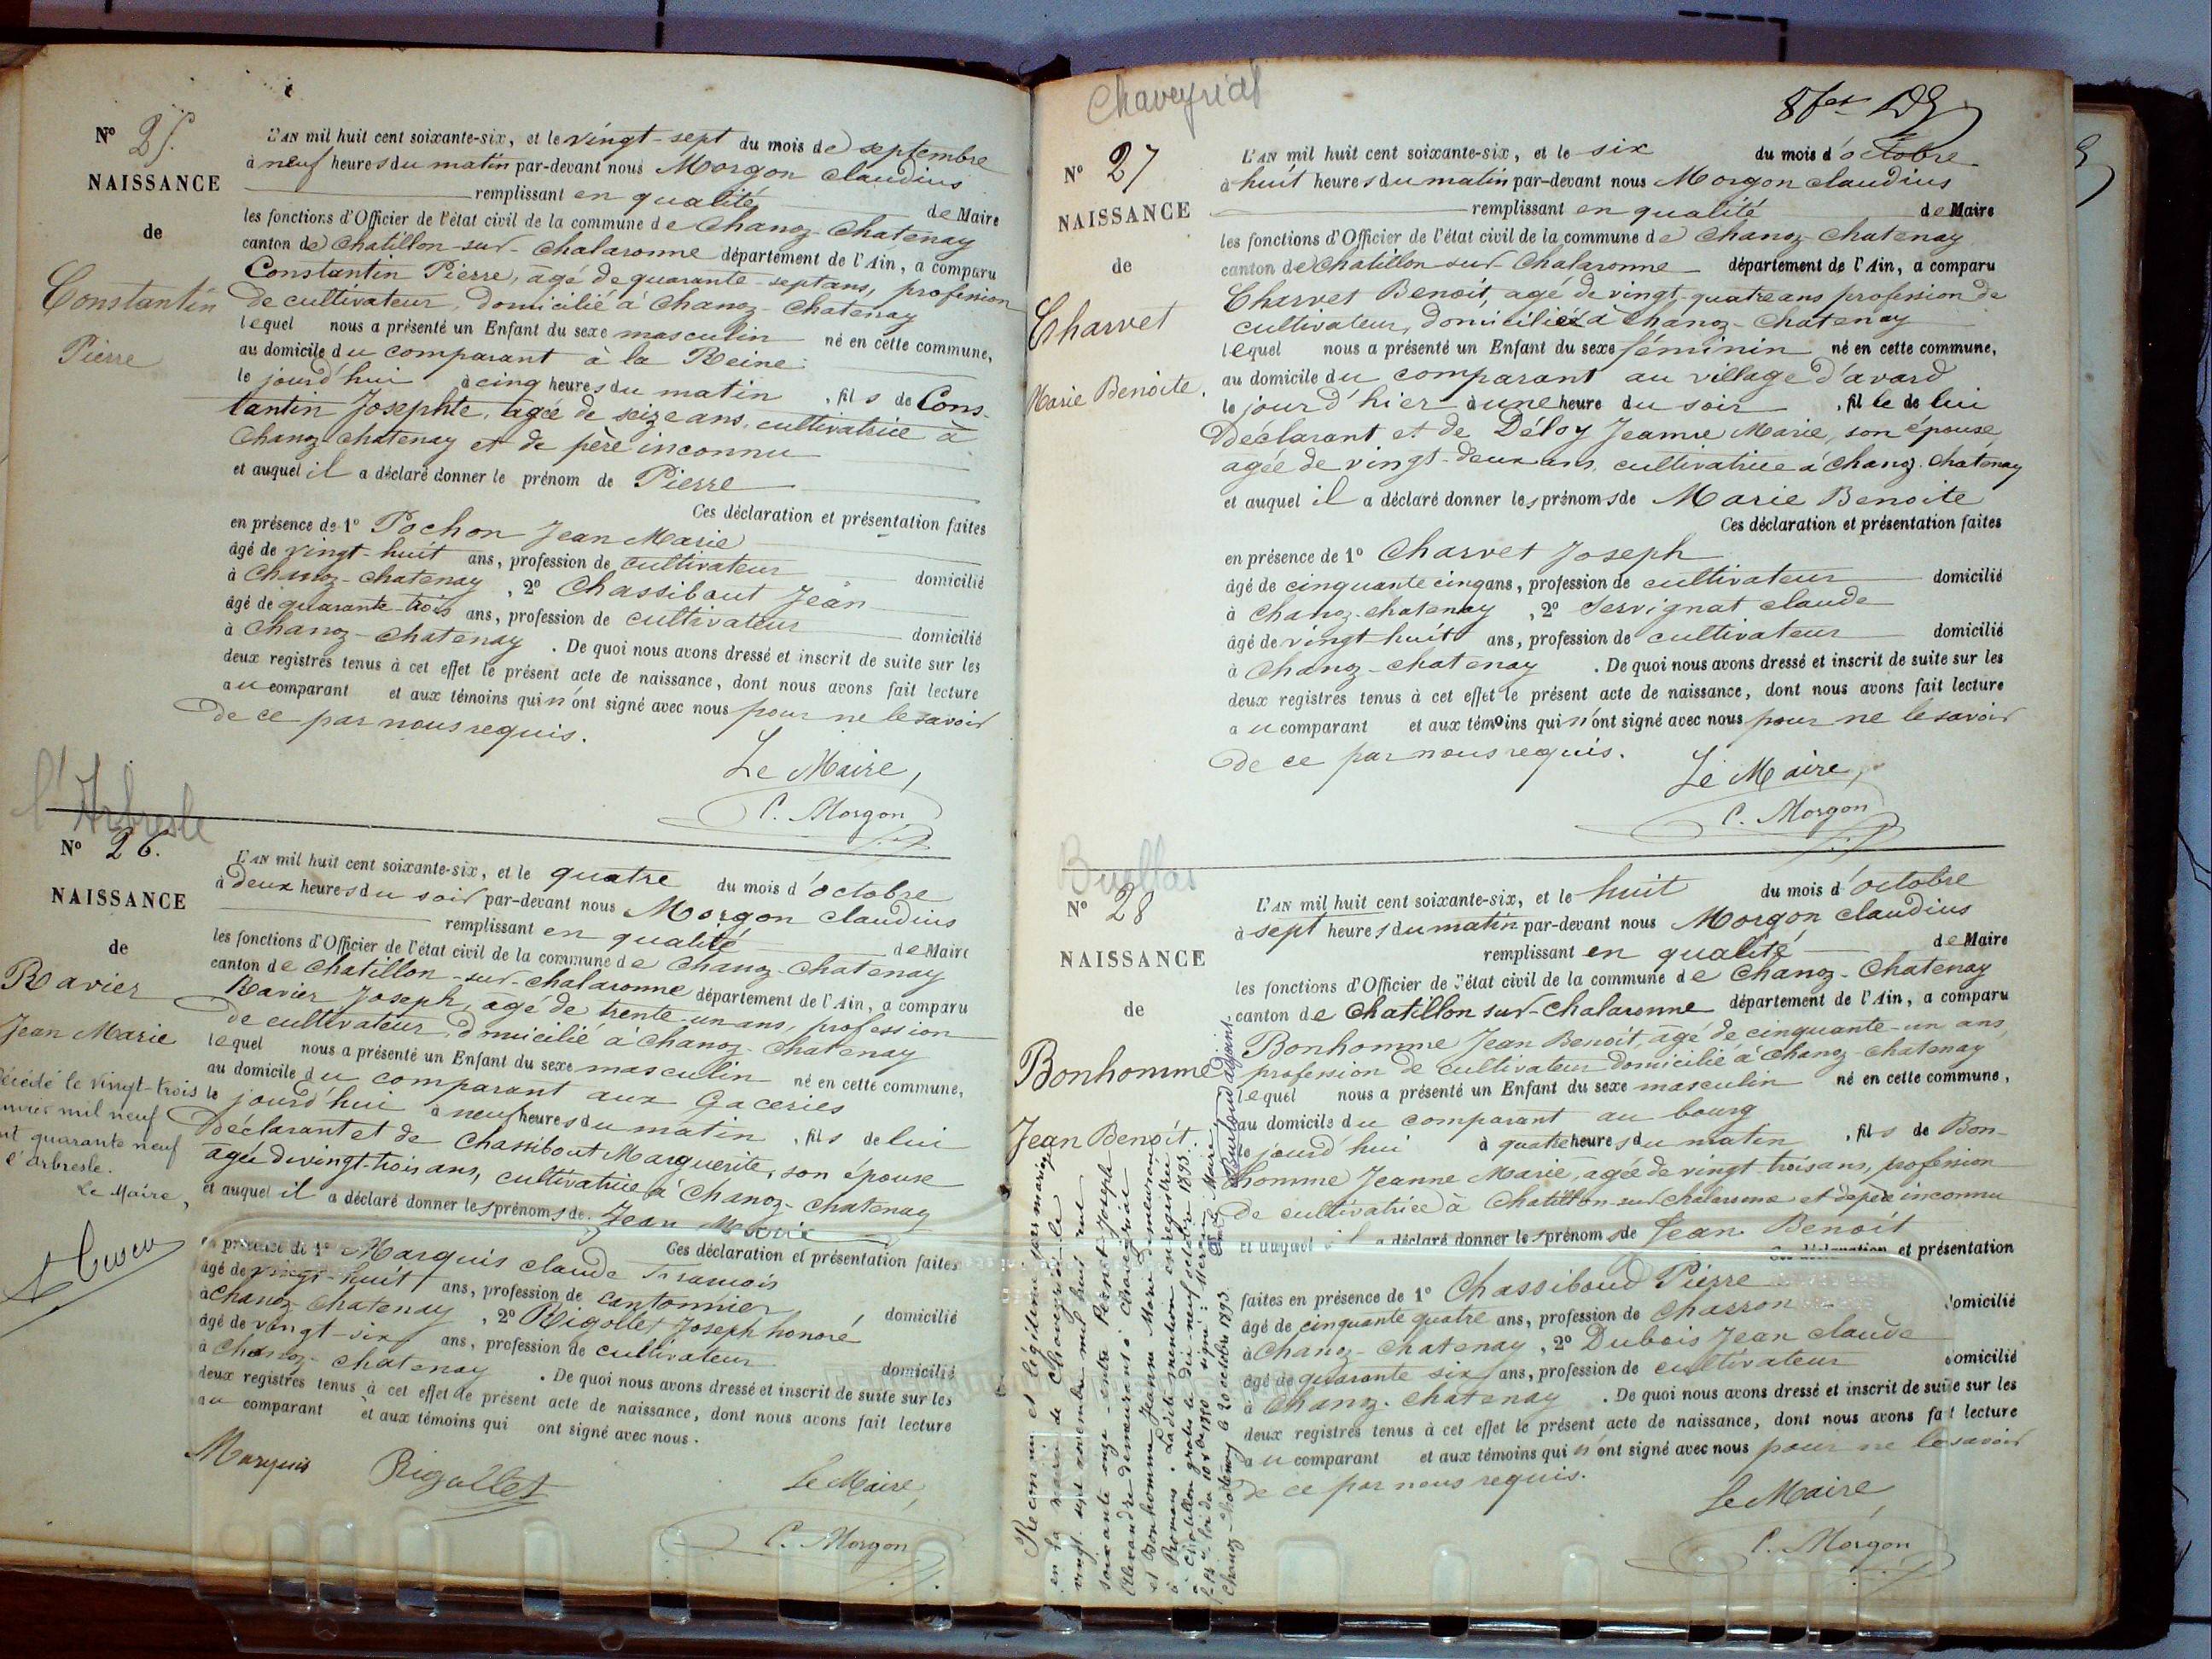 Nº 25.
NAISSANCE
de
Constantin
Pierre
L'AN mil huit cent soixante-six, et le vingt-sept du mois de septembre
à neuf heures du matin par-devant nous Morgon Claudius
remplissant en qualité de Maire
les fonctions d'Officier de l'état civil de la commune de Chanoz-Chatenay
canton de Chatillon-sur-Chalaronne département de l'Ain, a comparu
Constantin Pierre, agé de quarante-sept ans, profession
de cultivateur, domicilié à Chanoz-Chatenay
lequel nous a présenté un Enfant du sexe masculin né en cette commune,
au domicile du comparant à la Reine
le jourd'hui à cinq heures du matin, fils de Cons-
tantin Josephte, agée de seize ans, cultivatrice à
Chanoz-Chatenay et de père inconnu
et auquel il a déclaré donner le prénom de Pierre
Ces déclaration et présentation faites
en présence de 1º Pochon Jean Marie
âgé de vingt-huit ans, profession de cultivateur domicilié
à Chanoz-Chatenay, 2º Chassibout Jean
âgé de quarante-trois ans, profession de cultivateur domicilié
à Chanoz-Chatenay. De quoi nous avons dressé et inscrit de suite sur les
deux registres tenus à cet effet le présent acte de naissance, dont nous avons fait lecture
au comparant et aux témoins qui n'ont signé avec nous pour ne le savoir
de ce par nous requis.
Le Maire,
C. Morgon
l'Arbresle
Nº 26.
NAISSANCE
de
Ravier
Jean Marie
décédé le vingt-trois
mil neuf
quarante neuf
l'arbresle.
Le Maire,
L'AN mil huit cent soixante-six, et le quatre du mois d'octobre
à deux heures du soir par-devant nous Morgon Claudius
remplissant en qualité de Maire
les fonctions d'Officier de l'état civil de la commune de Chanoz-Chatenay
canton de Chatillon-sur-Chalaronne département de l'Ain, a comparu
Ravier Joseph, agé de trente-un ans, profession
de cultivateur, domicilié à Chanoz-Chatenay
lequel nous a présenté un Enfant du sexe masculin né en cette commune,
au domicile du comparant aux Gaceries
le jourd'hui à neuf heures du matin, fils de lui
Déclarant et de Chassibout Marguerite, son épouse
agée de vingt-trois ans, cultivatrice à Chanoz-Chatenay
et auquel il a déclaré donner les prénoms de Jean Marie
Ces déclaration et présentation faites
en présence de 1º Marquis Claude François
âgé de vingt-huit ans, profession de cantonnier, domicilié
à Chanoz-Chatenay, 2º Rigollet Joseph honoré
âgé de vingt-six ans, profession de cultivateur domicilié
à Chanoz-Chatenay. De quoi nous avons dressé et inscrit de suite sur les
deux registres tenus à cet effet le présent acte de naissance, dont nous avons fait lecture
au comparant et aux témoins qui ont signé avec nous.
Marquis Rigollet Le Maire,
C. Morgon
Chaveyriat
Nº 27
NAISSANCE
de
Charvet
Marie Benoite.
L'AN mil huit cent soixante-six, et le six du mois d'octobre
à huit heures du matin par-devant nous Morgon Claudius
remplissant en qualité de Maire
les fonctions d'Officier de l'état civil de la commune de Chanoz-Chatenay
canton de Chatillon-sur-Chalaronne département de l'Ain, a comparu
Charvet Benoit, agé de vingt-quatre ans profession de
cultivateur, domicilié à Chanoz-Chatenay
lequel nous a présenté un Enfant du sexe féminin né en cette commune,
au domicile du comparant au village d'avard
le jour d'hier à une heure du soir, fille de lui
Déclarant et de Déloy Jeanne Marie, son épouse,
agée de vingt-deux ans, cultivatrice à Chanoz-Chatenay
et auquel il a déclaré donner les prénoms de Marie Benoite
Ces déclaration et présentation faites
en présence de 1º Charvet Joseph
âgé de cinquante cinq ans, profession de cultivateur domicilié
à Chanoz-Chatenay, 2º Servignat Claude
âgé de vingt huit ans, profession de cultivateur domicilié
à Chanoz-Chatenay. De quoi nous avons dressé et inscrit de suite sur les
deux registres tenus à cet effet le présent acte de naissance, dont nous avons fait lecture
au comparant et aux témoins qui n'ont signé avec nous pour ne le savoir
de ce par nous requis.
Le Maire,
C. Morgon
Buellas
Nº 28
NAISSANCE
de
Bonhomme
Jean Benoît.
L'AN mil huit cent soixante-six, et le huit du mois d'octobre
à sept heures du matin par-devant nous Morgon Claudius
remplissant en qualité de Maire
les fonctions d'Officier de l'état civil de la commune de Chanoz-Chatenay
canton de Chatillon sur-Chalaronne département de l'Ain, a comparu
Bonhomme Jean Benoit, agé de cinquante-un ans,
profession de cultivateur domicilié à Chanoz-Chatenay
lequel nous a présenté un Enfant du sexe masculin né en cette commune,
au domicile du comparant au bourg
le jourd'hui à quatre heures du matin, fils de Bon-
homme Jeanne Marie, agée de vingt-trois ans, profession
de cultivatrice à Chatillon-sur Chalaronne et de père inconnu
et auquel il a déclaré donner les prénoms de Jean Benoit
Ces déclaration et présentation
faites en présence de 1º Chassiboud Pierre
âgé de cinquante quatre ans, profession de Charron domicilié
à Chanoz-Chatenay, 2º Dubois Jean Claude
âgé de quarante six ans, profession de cultivateur domicilié
à Chanoz-Chatenay. De quoi nous avons dressé et inscrit de suite sur les
deux registres tenus à cet effet le présent acte de naissance, dont nous avons fait lecture
au comparant et aux témoins qui n'ont signé avec nous pour ne le savoir
de ce par nous requis.
Le Maire,
C. Morgon
Reconnu et légitimé par mariage
en la mairie de Chaveyriat le
vingt sept novembre mil huit cent
soixante onze entre Perret Joseph
Alexandre demeurant à Chaveyriat
et Bonhomme Jeanne Marie demeurant
à Romans. La dite mention enregistrée
à Chatillon gratis le dix-neuf octobre 1893.
loi du 10 Xbre 1850 signé:
Chanoz-Chatenay le 20 octobre 1893.
adjoint